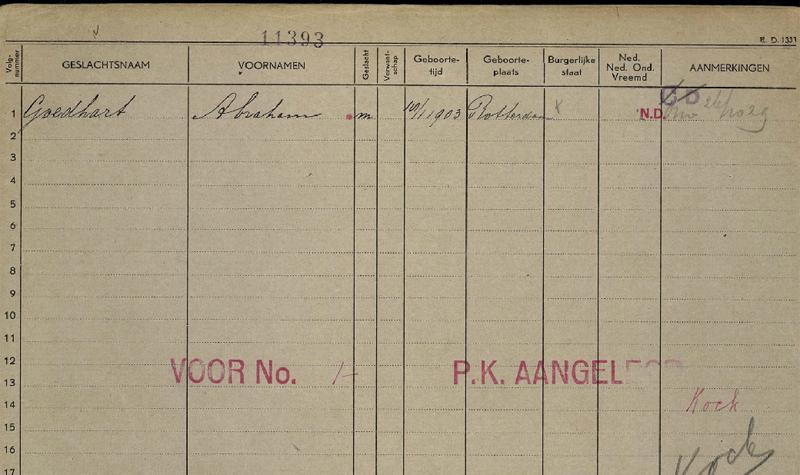 11393
R. D. 1331
Volg-nummer GESLACHTSNAAM VOORNAMEN Geslacht Verwant-schap Geboorte-tijd Geboorte-plaats Burgerlijke staat Ned. Ned. Ond. Vreemd AANMERKINGEN
1 Goedhart Abraham m 10/1 1903 Rotterdam N.D.
2
3
4
5
6
7
8
9
10
11
12 VOOR No. 1- P.K. AANGELEGD
13
14 Kock
15
16
17